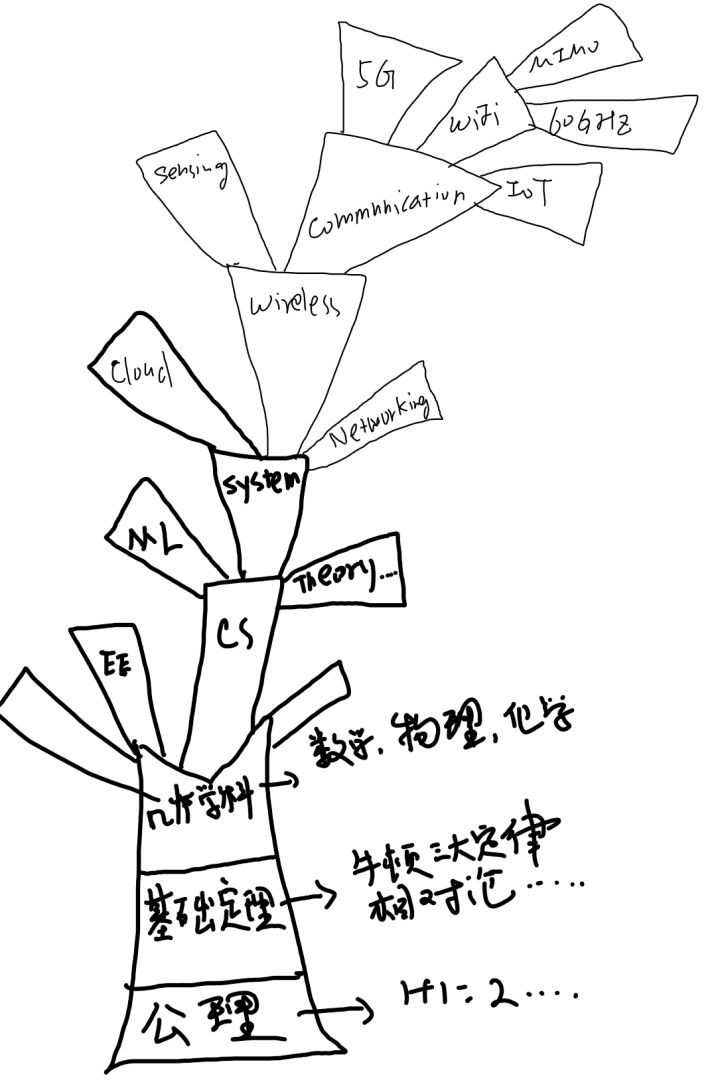 5G
MIMO
WiFi
60GHZ
Sensing
Communication
IoT
Wireless
Cloud
Networking
System
ML
Theory....
CS
EE
数学, 物理, 化学
学科
牛顿三大定律
基础定理
相对论.....
公理
1+1=2....